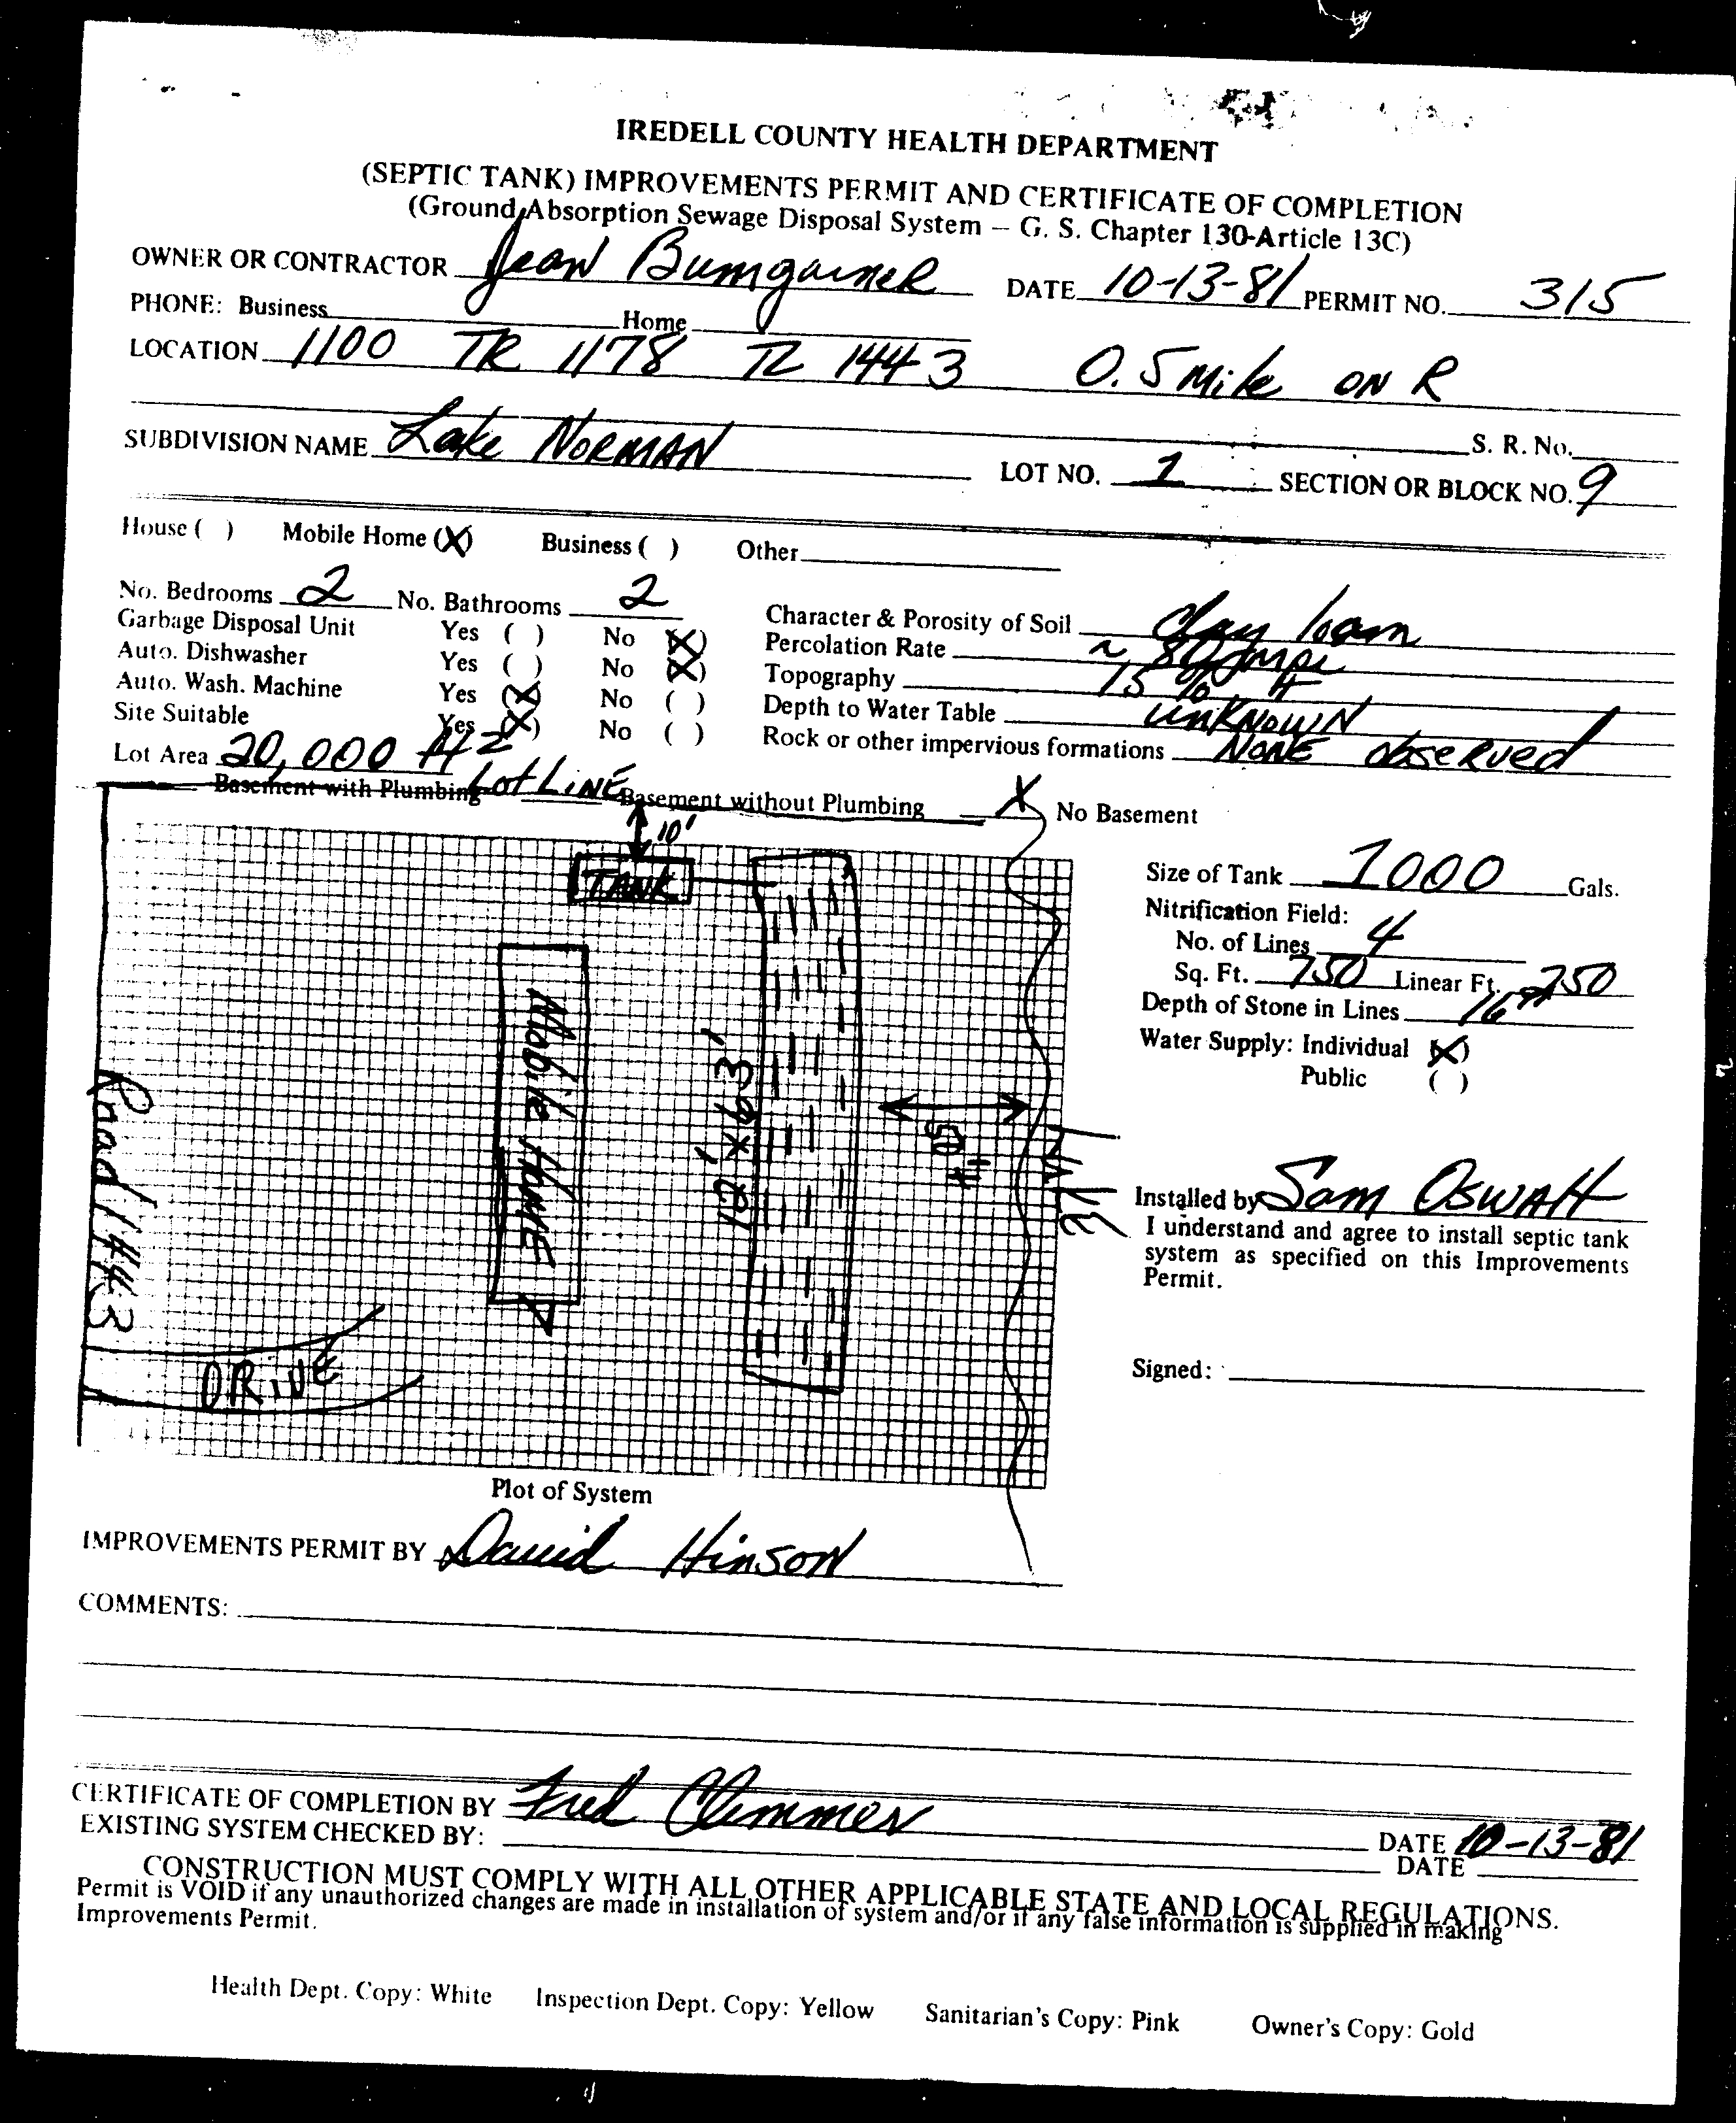 IREDELL COUNTY HEALTH DEPARTMENT
(SEPTIC TANK) IMPROVEMENTS PERMIT AND CERTIFICATE OF COMPLETION
(Ground Absorption Sewage Disposal System – G. S. Chapter 130-Article 13C)
OWNER OR CONTRACTOR Jean Bumgarner DATE 10-13-81 PERMIT NO. 315
PHONE: Business Home
LOCATION 1100 TR 1178 TL 1443 0.5 Mile ON R
S. R. No.
SUBDIVISION NAME Lake NORMAN LOT NO. 1 SECTION OR BLOCK NO. 9
House ( ) Mobile Home (X) Business ( ) Other
No. Bedrooms 2 No. Bathrooms 2
Garbage Disposal Unit Yes ( ) No (X)
Auto. Dishwasher Yes ( ) No (X)
Auto. Wash. Machine Yes (X) No ( )
Site Suitable Yes (X) No ( )
Lot Area 20,000 ft2
Character & Porosity of Soil clay loam
Percolation Rate ~ 80 mpi
Topography 15 %
Depth to Water Table UNKNOWN
Rock or other impervious formations NONE observed
Basement with Plumbing Basement without Plumbing X No Basement
Lot LINE
10'
TANK
Mobile Home
12' x 63'
50 ft
LAKE
Road 1443
DRIVE
Plot of System
Size of Tank 1000 Gals.
Nitrification Field:
No. of Lines 4
Sq. Ft. 750 Linear Ft. 250
Depth of Stone in Lines 16"
Water Supply: Individual (X)
Public ( )
Installed by Sam Oswalt
I understand and agree to install septic tank
system as specified on this Improvements
Permit.
Signed:
IMPROVEMENTS PERMIT BY David Hinson
COMMENTS:
CERTIFICATE OF COMPLETION BY Fred Clemmer DATE 10-13-81
EXISTING SYSTEM CHECKED BY: DATE
CONSTRUCTION MUST COMPLY WITH ALL OTHER APPLICABLE STATE AND LOCAL REGULATIONS.
Permit is VOID if any unauthorized changes are made in installation of system and/or if any false information is supplied in making
Improvements Permit.
Health Dept. Copy: White Inspection Dept. Copy: Yellow Sanitarian's Copy: Pink Owner's Copy: Gold